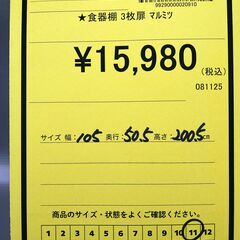 99290000020910
★食器棚 3枚扉 マルミツ
¥15,980
(税込)
081125
サイズ 幅:105 奥行:50.5 高さ:200.5cm
商品のサイズ・状態をよくご確認ください。
1 2 3 4 5 6 7 8 9 10 11 12